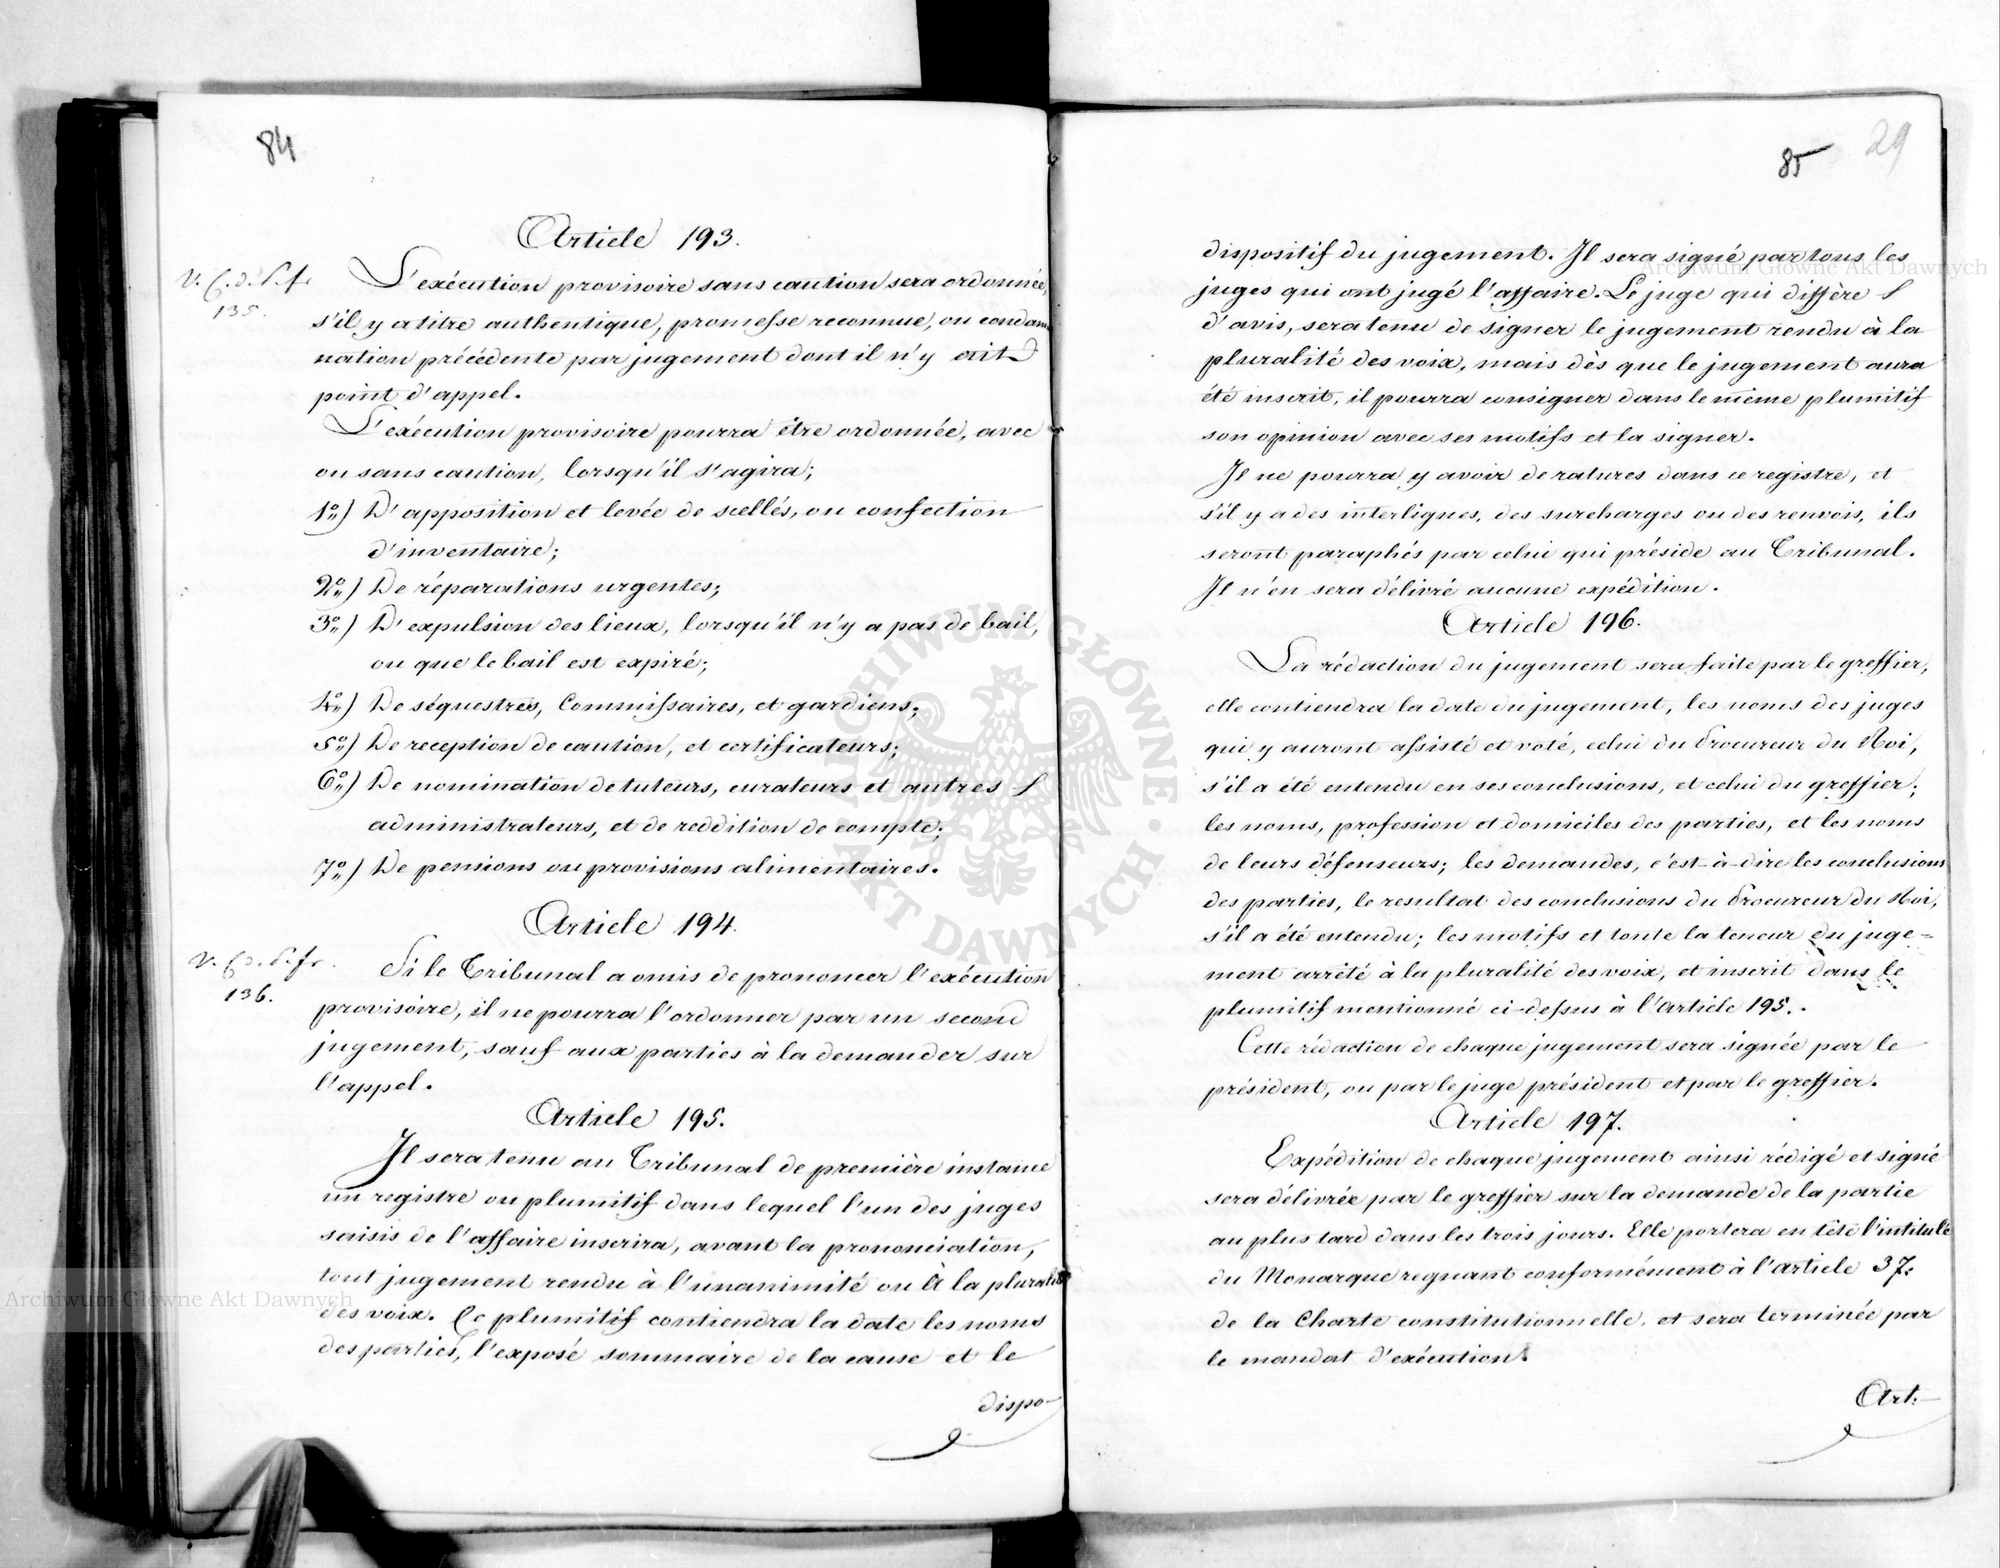 84
Article 193.
V. C. d. P. f.
135.
L'exécution provisoire sans caution sera ordonnée,
s'il y a titre authentique, promesse reconnue, ou condam
nation précédente par jugement dont il n'y ait
point d'appel.
L'exécution provisoire pourra être ordonnée, avec
ou sans caution, lorsqu'il s'agira;
1º) D'apposition et levée de scellés, ou confection
d'inventaire;
2º) De réparations urgentes;
3º) D'expulsion des lieux, lorsqu'il n'y a pas de bail,
ou que le bail est expiré;
4º) De séquestres, Commissaires, et gardiens;
5º) De reception de caution, et certificateurs;
6º) De nomination de tuteurs, curateurs et autres
administrateurs, et de reddition de compte;
7º) De pensions ou provisions alimentaires.
Article 194.
V. C. d. P. fr.
136.
Si le Tribunal a omis de prononcer l'exécution
provisoire, il ne pourra l'ordonner par un second
jugement, sauf aux parties à la demander sur
l'appel.
Article 195.
Il sera tenu au Tribunal de première instance
un registre ou plumitif dans lequel l'un des juges
saisis de l'affaire inscrira, avant la prononciation,
tout jugement rendu à l'unanimité ou à la pluralité
des voix. Ce plumitif contiendra la date les noms
des parties, l'exposé sommaire de la cause et le
dispo-
85
29
dispositif du jugement. Il sera signé par tous les
juges qui ont jugé l'affaire. Le juge qui diffère
d'avis, sera tenu de signer le jugement rendu à la
pluralité des voix, mais dès que le jugement aura
été inscrit, il pourra consigner dans le même plumitif
son opinion avec ses motifs et la signer.
Il ne pourra y avoir de ratures dans ce registre, et
s'il y a des interlignes, des surcharges ou des renvois, ils
seront paraphés par celui qui préside au Tribunal.
Il n'en sera délivré aucune expédition.
Article 196.
La rédaction du jugement sera faite par le greffier,
elle contiendra la date du jugement, les noms des juges
qui y auront assisté et voté, celui du Procureur du Roi,
s'il a été entendu en ses conclusions, et celui du greffier;
les noms, profession et domiciles des parties, et les noms
de leurs défenseurs; les demandes, c'est-à-dire les conclusions
des parties, le resultat des conclusions du Procureur du Roi,
s'il a été entendu; les motifs et toute la teneur du juge=
ment arrêté à la pluralité des voix, et inscrit dans le
plumitif mentionné ci-dessus à l'article 195.
Cette rédaction de chaque jugement sera signée par le
président, ou par le juge président et par le greffier.
Article 197.
Expédition de chaque jugement ainsi rédigé et signé
sera délivrée par le greffier sur la demande de la partie
au plus tard dans les trois jours. Elle portera en tête l'intitulé
du Monarque regnant conformément à l'article 37.
de la Charte constitutionnelle, et sera terminée par
le mandat d'exécution.
Art:
Archiwum Główne Akt Dawnych
ARCHIWUM GŁÓWNE · AKT DAWNYCH ·
Archiwum Główne Akt Dawnych